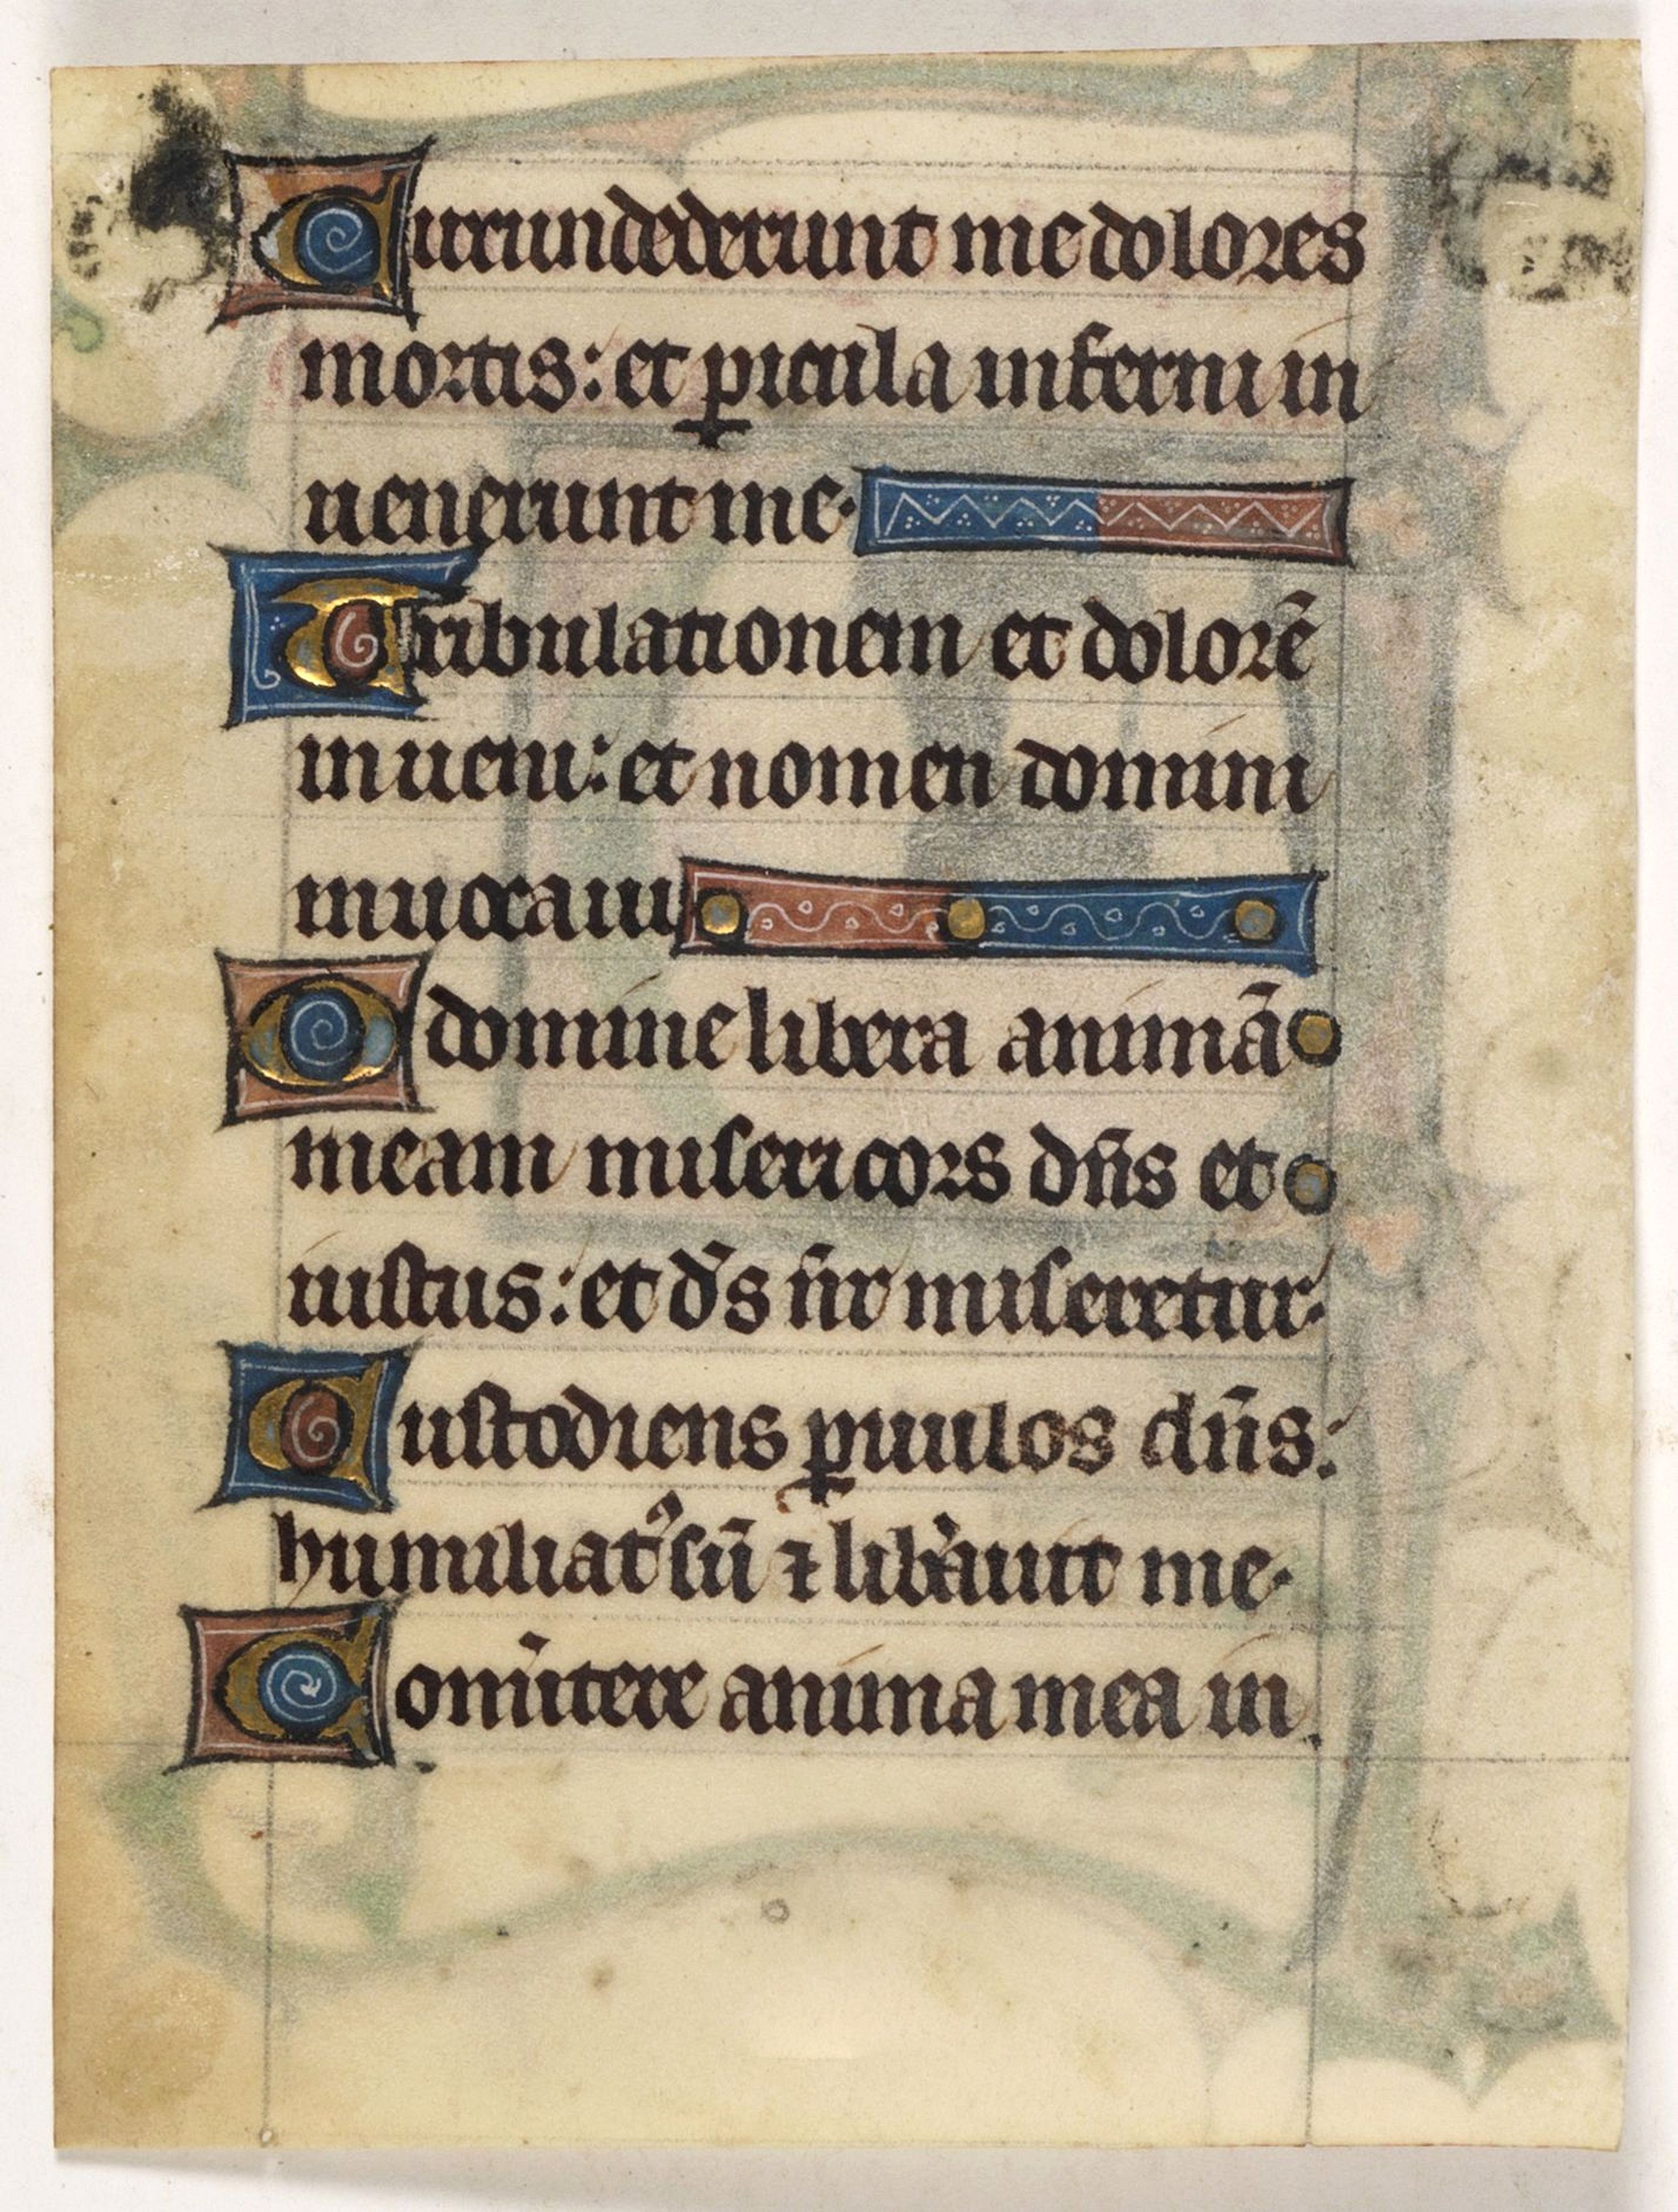 Circundederunt me dolores
mortis: et ꝑicula inferni in
uenerunt me·
Tribulationem et dolorē
inueni: et nomen domini
inuocaui
O domine libera animā
meam misericors dn̄s et
iustus: et d̄s nr̄ miseretur·
Custodiens ꝑuulos dn̄s:
humiliatꝰ sū ⁊ lib̾auit me·
Conūtere anima mea in